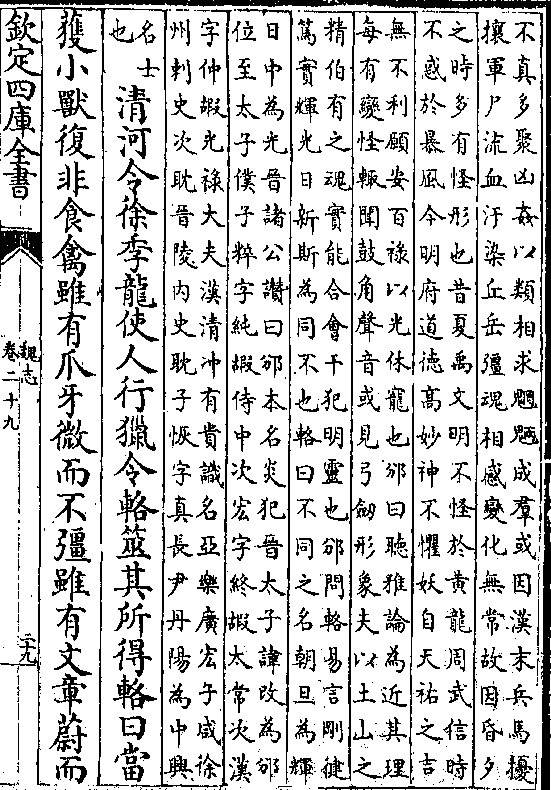 不真多聚凶姦以類相求魍魎成羣或因漢末兵馬擾
攘軍尸流血汙染丘岳彊魂相感變化無常故因昏夕
之時多有怪形也昔夏禹文明不怪於黃龍周武信時
不惑於暴風今明府道德髙妙神不懼妖自天祐之吉
無不利願安百禄以光休寵也邠曰聽雅論為近其理
每有變怪輙聞鼓角聲音或見弓劔形象夫以土山之
精伯有之魂實能合會干犯明靈也邠問輅易言剛健
篤實輝光日新斯為同不也輅曰不同之名朝旦為輝
日中為光晉諸公讃曰邠本名炎犯晉太子諱改為邠
位至太子僕子粹字純嘏侍中次宏字終嘏太常次漢
字仲嘏光禄大夫漢清冲有貴識名亞樂廣宏子咸徐
州刺史次耽晉陵内史耽子恢字真長尹丹陽為中興
名士
也
清河令徐季龍使人行獵令輅筮其所得輅曰當
獲小獸復非食禽雖有爪牙微而不彊雖有文章蔚而
欽定四庫全書
魏志
卷二十九
二十九